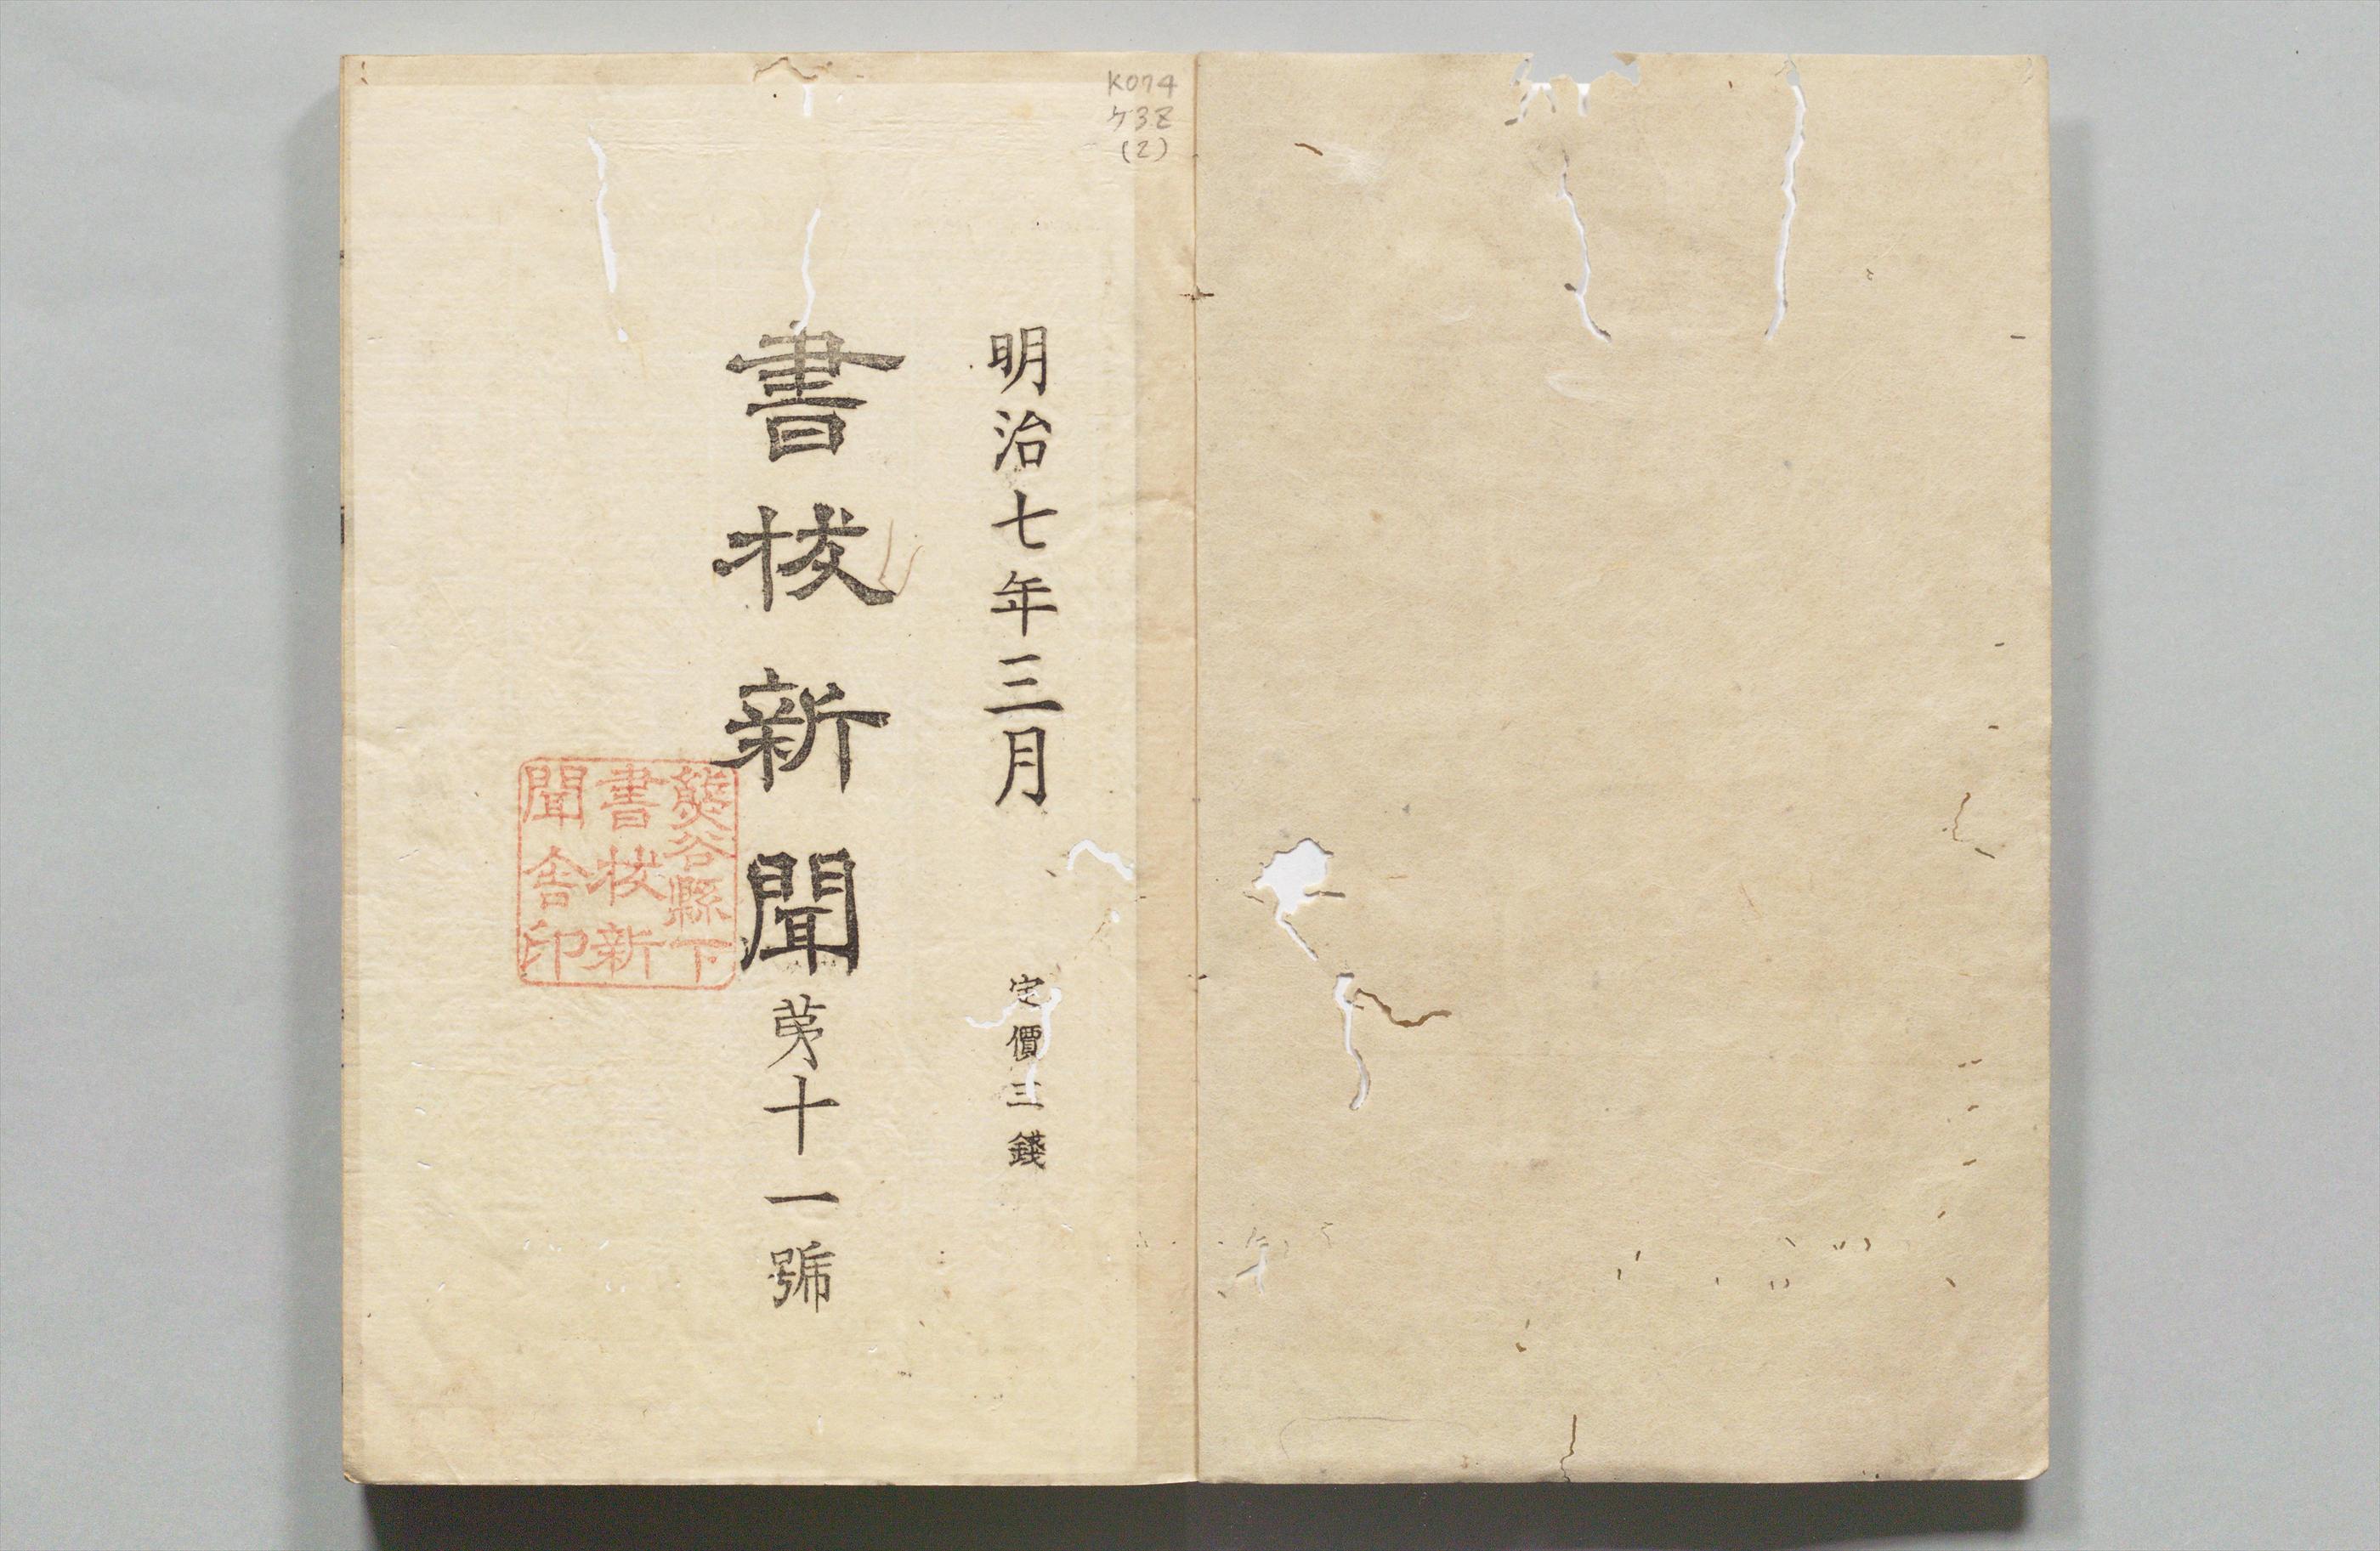 K074
ケ3Z
(2)
明治七年三月
定價三錢
書抜新聞第十一號
熊谷縣下
書抜新
聞舎印